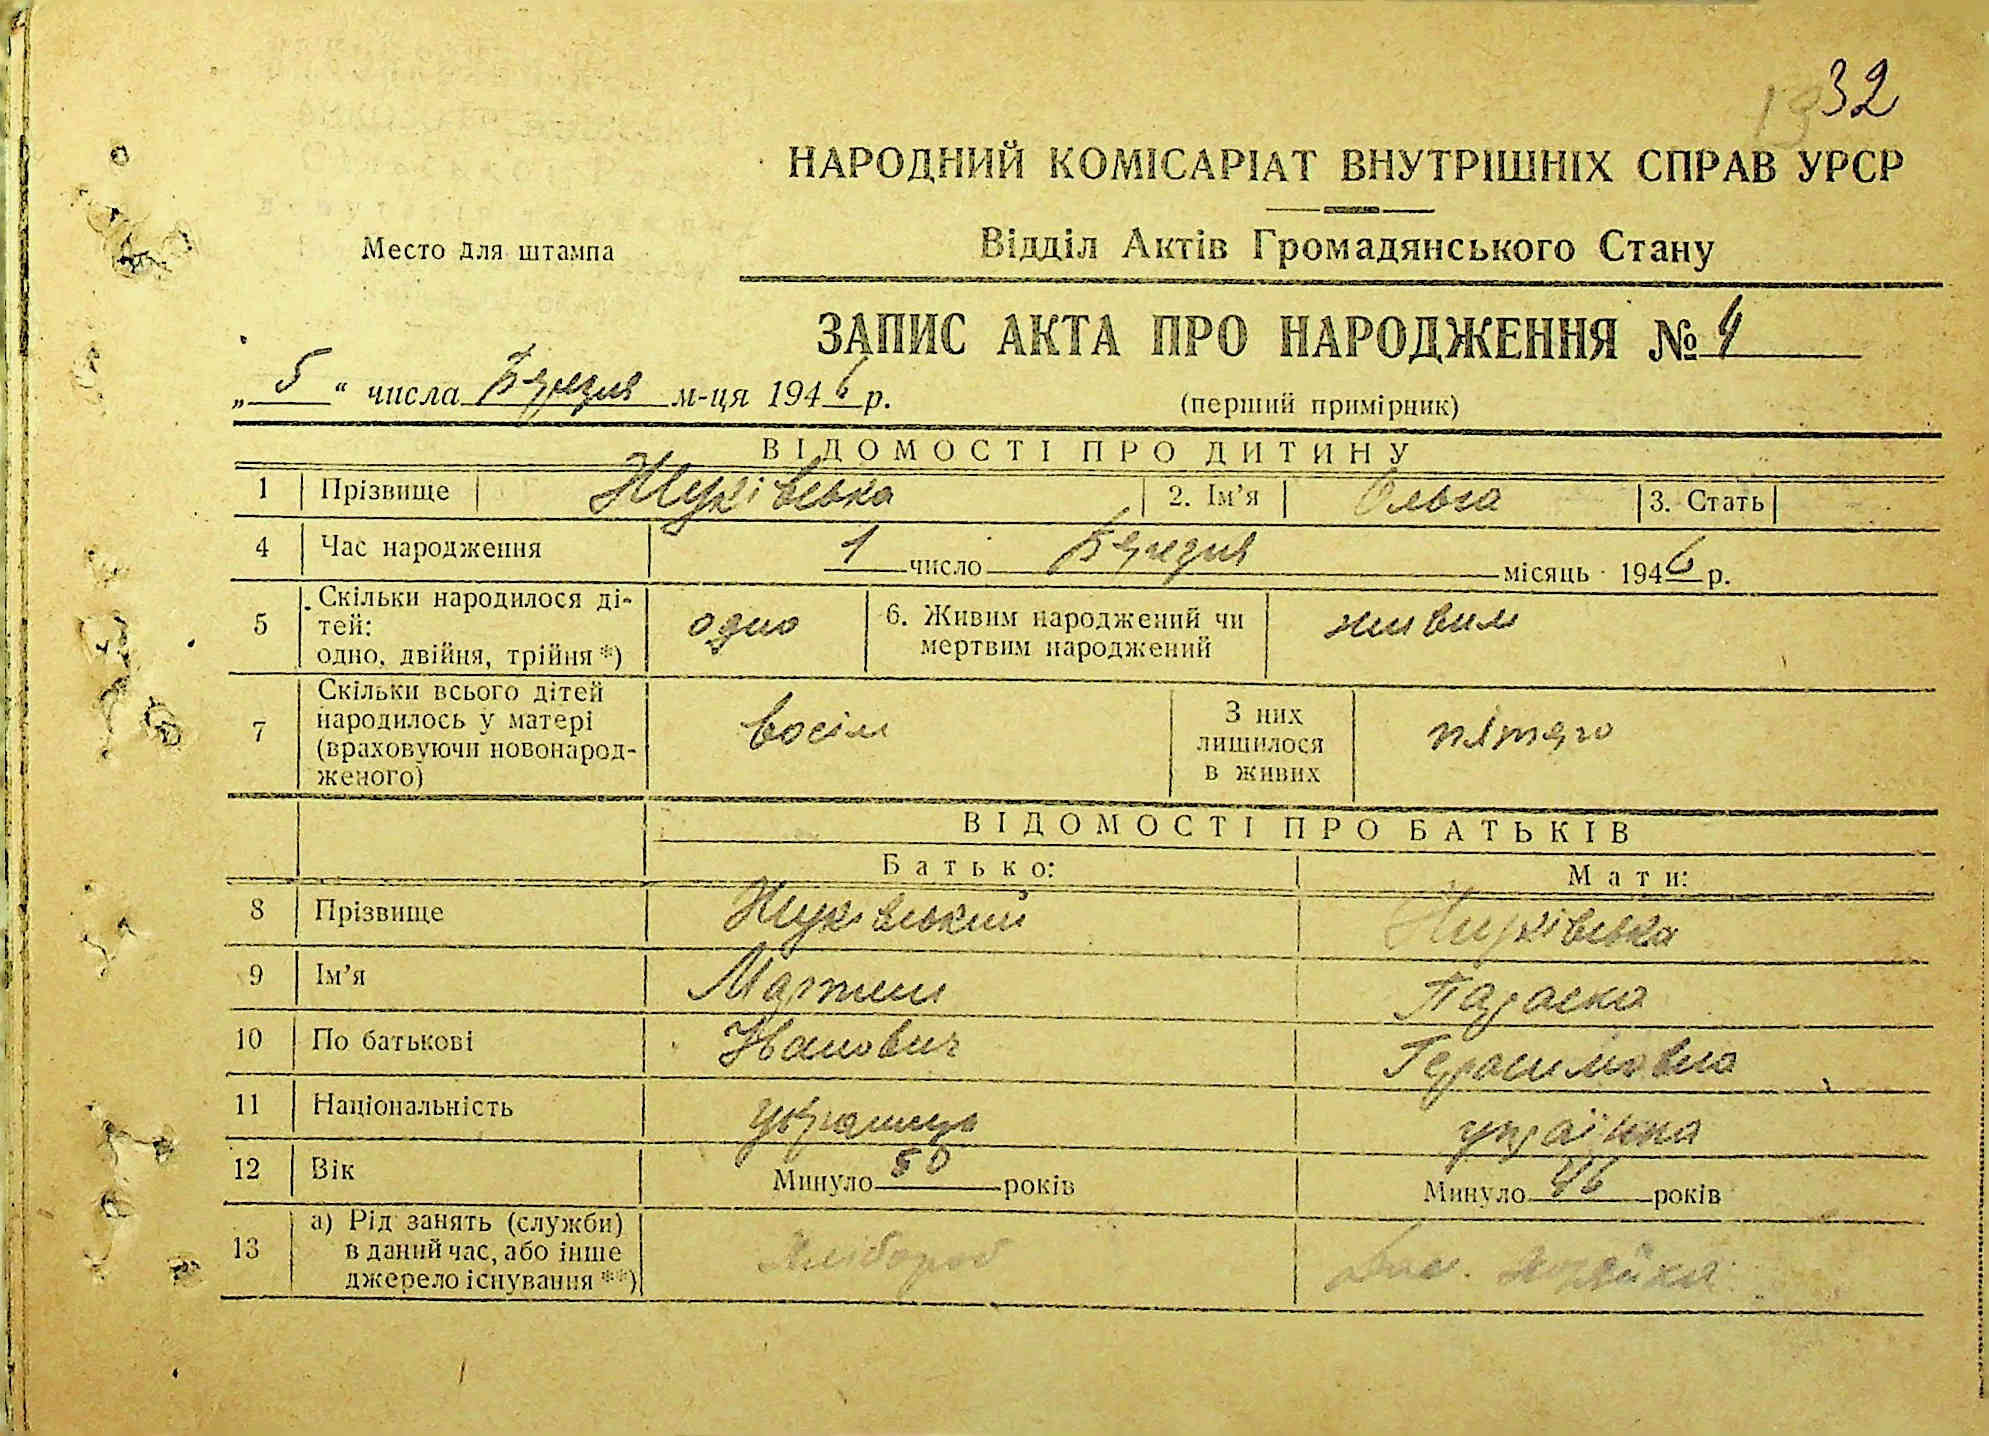 32
НАРОДНИЙ КОМІСАРІАТ ВНУТРІШНІХ СПРАВ УРСР
Место для штампа
Відділ Актів Громадянського Стану
ЗАПИС АКТА ПРО НАРОДЖЕННЯ № 4
„ 5 “ числа Березня м-ця 1946 р.
(перший примірник)
ВІДОМОСТІ ПРО ДИТИНУ
1 Прізвище Жуківська 2. Ім’я Ольга 3. Стать
4 Час народження 1 число Березня місяць 1946 р.
5 Скільки народилося ді-
тей:
одно, двійня, трійня *) одно 6. Живим народжений чи
мертвим народжений живим
7 Скільки всього дітей
народилось у матері
(враховуючи новонарод-
женого) восім З них
лишилося
в живих пятеро
ВІДОМОСТІ ПРО БАТЬКІВ
Батько: Мати:
8 Прізвище Жуківський Жуківська
9 Ім’я Мартин Параска
10 По батькові Іванович Герасимовна
11 Національність українець українка
12 Вік Минуло 50 років Минуло 46 років
13 а) Рід занять (служби)
в даний час, або інше
джерело існування **) Хлібороб Дом. хозяйка